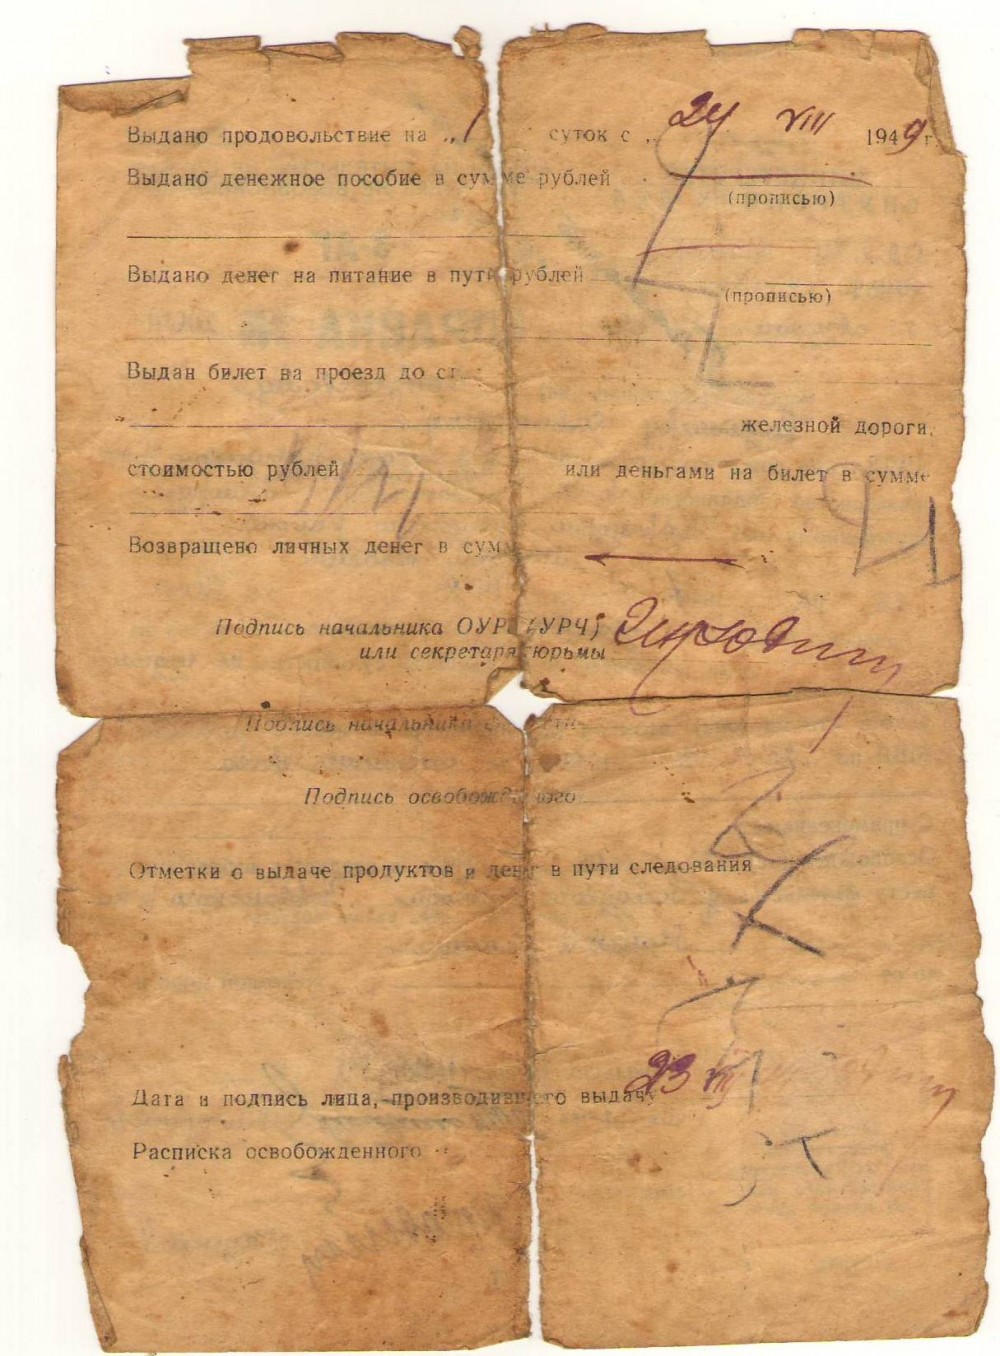 Выдано продовольствие на „1 суток с „24 VIII 1949 г.
Выдано денежное пособие в сумме рублей
(прописью)
Выдано денег на питание в пути рублей
(прописью)
Выдан билет на проезд до ст.
железной дороги,
стоимостью рублей или деньгами на билет в сумме
Возвращено личных денег в сумм
Подпись начальника ОУР (УРЧ)
или секретаря тюрьмы
Подпись начальника
Подпись освобожденного
Отметки о выдаче продуктов и денег в пути следования
23 VIII
Дата и подпись лица, производившего выдачу
Расписка освобожденного